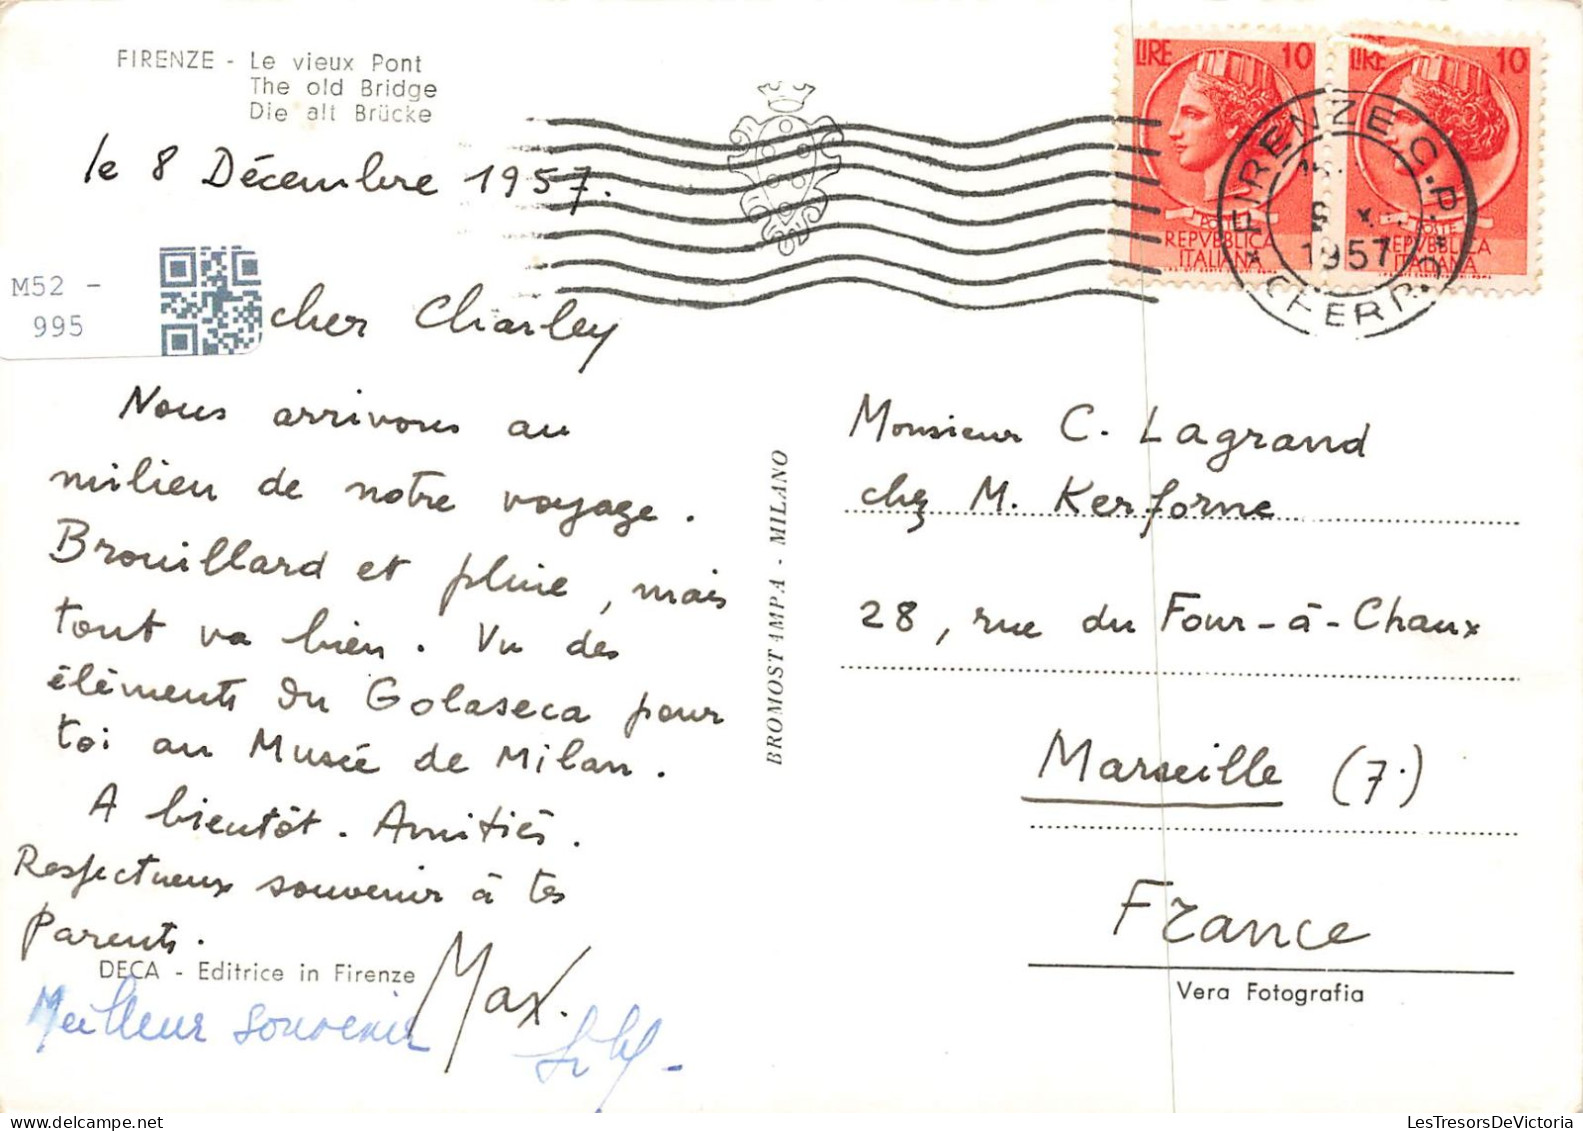 FIRENZE - Le vieux Pont
The old Bridge
Die alt Brücke
le 8 Décembre 1957.
M52 -
995
cher Charley
Nous arrivons au
milieu de notre voyage.
Brouillard et pluie, mais
tout va bien. Vu des
éléments du Golaseca pour
toi au Musée de Milan.
A bientôt. Amitiés.
Respectueux souvenir à tes
Parents.
Max.
DECA - Editrice in Firenze
Meilleur souvenir
BROMOSTAMPA - MILANO
LIRE 10
POSTE
REPVBBLICA
ITALIANA
LIRE 10
POSTE
REPVBBLICA
ITALIANA
FIRENZE C.P.
1957
Monsieur C. Lagrand
chez M. Kerforne
28, rue du Four-à-Chaux
Marseille (7.)
France
Vera Fotografia
LesTresorsDeVictoria